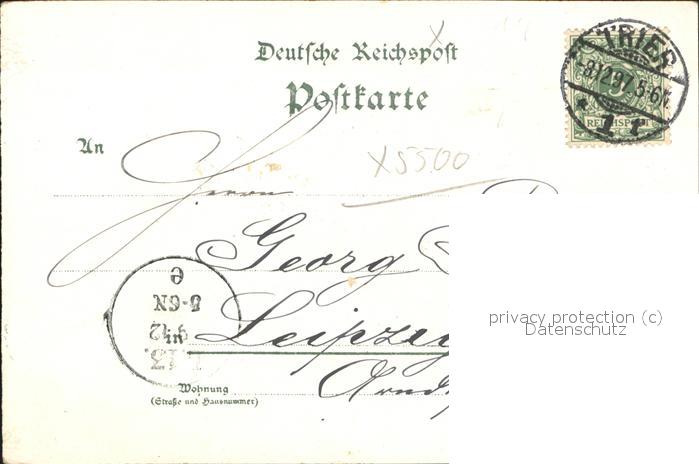 Deutsche Reichspost
Postkarte
TRIER
-8 12 97. 5-6N.
* 1 r
REICHSPOST
An
X5500
Herrn
Georg
privacy protection (c)
Datenschutz
Leipzig
5-6N
e
Wohnung
(Straße und Hausnummer)